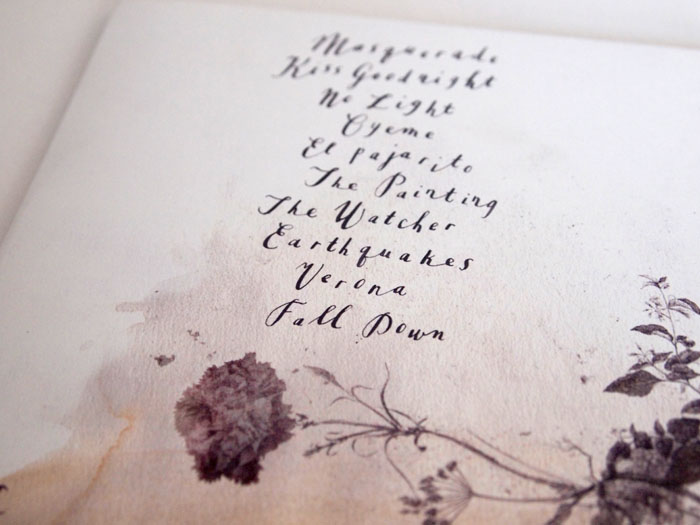 Masquerade
Kiss Goodnight
No Light
Oyeme
El pajarito
The Painting
The Watcher
Earthquakes
Verona
Fall Down